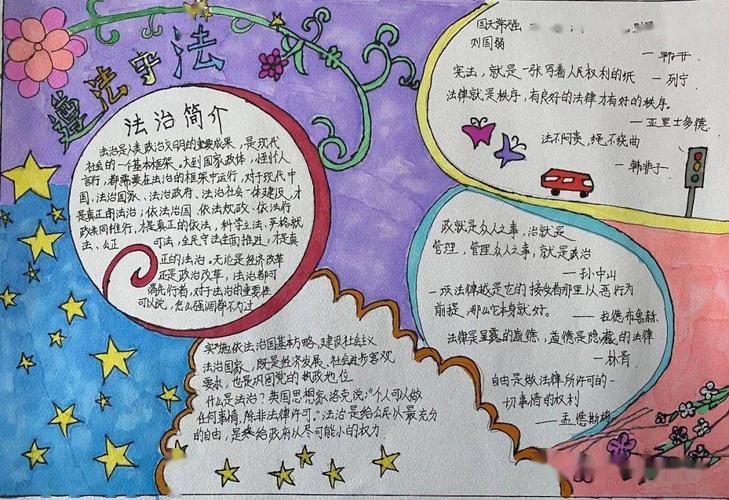 遵法守法
法治简介
法治是人类政治文明的重要成果，是现代
社会的一个基本框架。大到国家政体，
言行，都需要在法治的框架中运行，对于现代中
国，法治国家、法治政府、法治社会一体建设，才
是真正的法治；依法治国、依法执政、依法行
政共同推行，才是真正的依法，科学立法、严格执
法、公正司法，全民守法全面推进，才是真
正的法治。无论是经济改革
还是政治改革，法治都可
谓先行者，对于法治的重要性
可以说，怎么强调都不为过
实施依法治国基本方略，建设社会主义
法治国家，既是经济发展、社会进步客观
要求，也是巩固党的执政地位
什么是法治？英国思想家洛克说："个人可以做
任何事情，除非法律许可。"法治是给公民以最充分
的自由，是给政府以尽可能小的权力
国无常强
刘国弱
—韩非
宪法，就是一张写着人民权利的纸
—列宁
法律就是秩序，有良好的法律才有好的秩序。
—亚里士多德
法不阿贵，绳不挠曲
—韩非子
政就是众人之事，治就是
管理，管理众人之事，就是政治
—孙中山
一项法律越是在它的接受者那里以恶行为
前提，那么它本身就好。
法律是显露的道德，道德是隐藏的法律
—林肯
自由是做法律所许可的一
切事情的权利
—孟德斯鸠